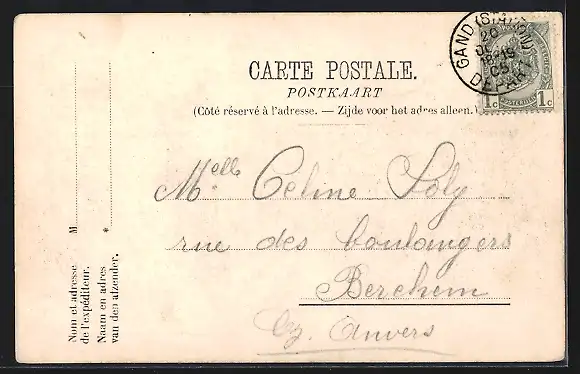 GAND (STATION)
DEPART
1c 1c
CARTE POSTALE.
POSTKAART
(Côté réservé à l'adresse. — Zijde voor het adres alleen.)
Melle Celine Soly
rue des boulangers
Berchem
Lez. Anvers
M
Nom et adresse
de l'expéditeur.
Naam en adres
van den afzender.